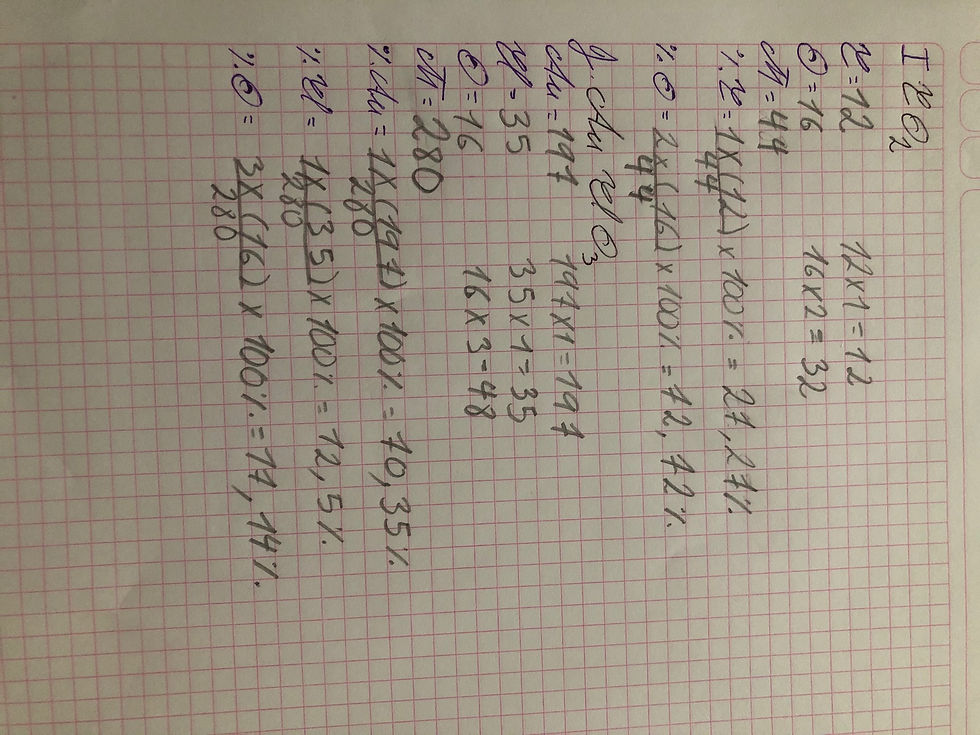 I CO₂
C = 12 12 x 1 = 12
O = 16 16 x 2 = 32
M = 44
%C = 1x(12) x 100% = 27,27%
44
%O = 2x(16) x 100% = 72,72%
44
J. Au Cl O₃
Au = 197 197 x 1 = 197
Cl = 35 35 x 1 = 35
O = 16 16 x 3 = 48
M = 280
%Au = 1x(197) x 100% = 70,35%
280
%Cl = 1x(35) x 100% = 12,5%
280
%O = 3x(16) x 100% = 17,14%.
280